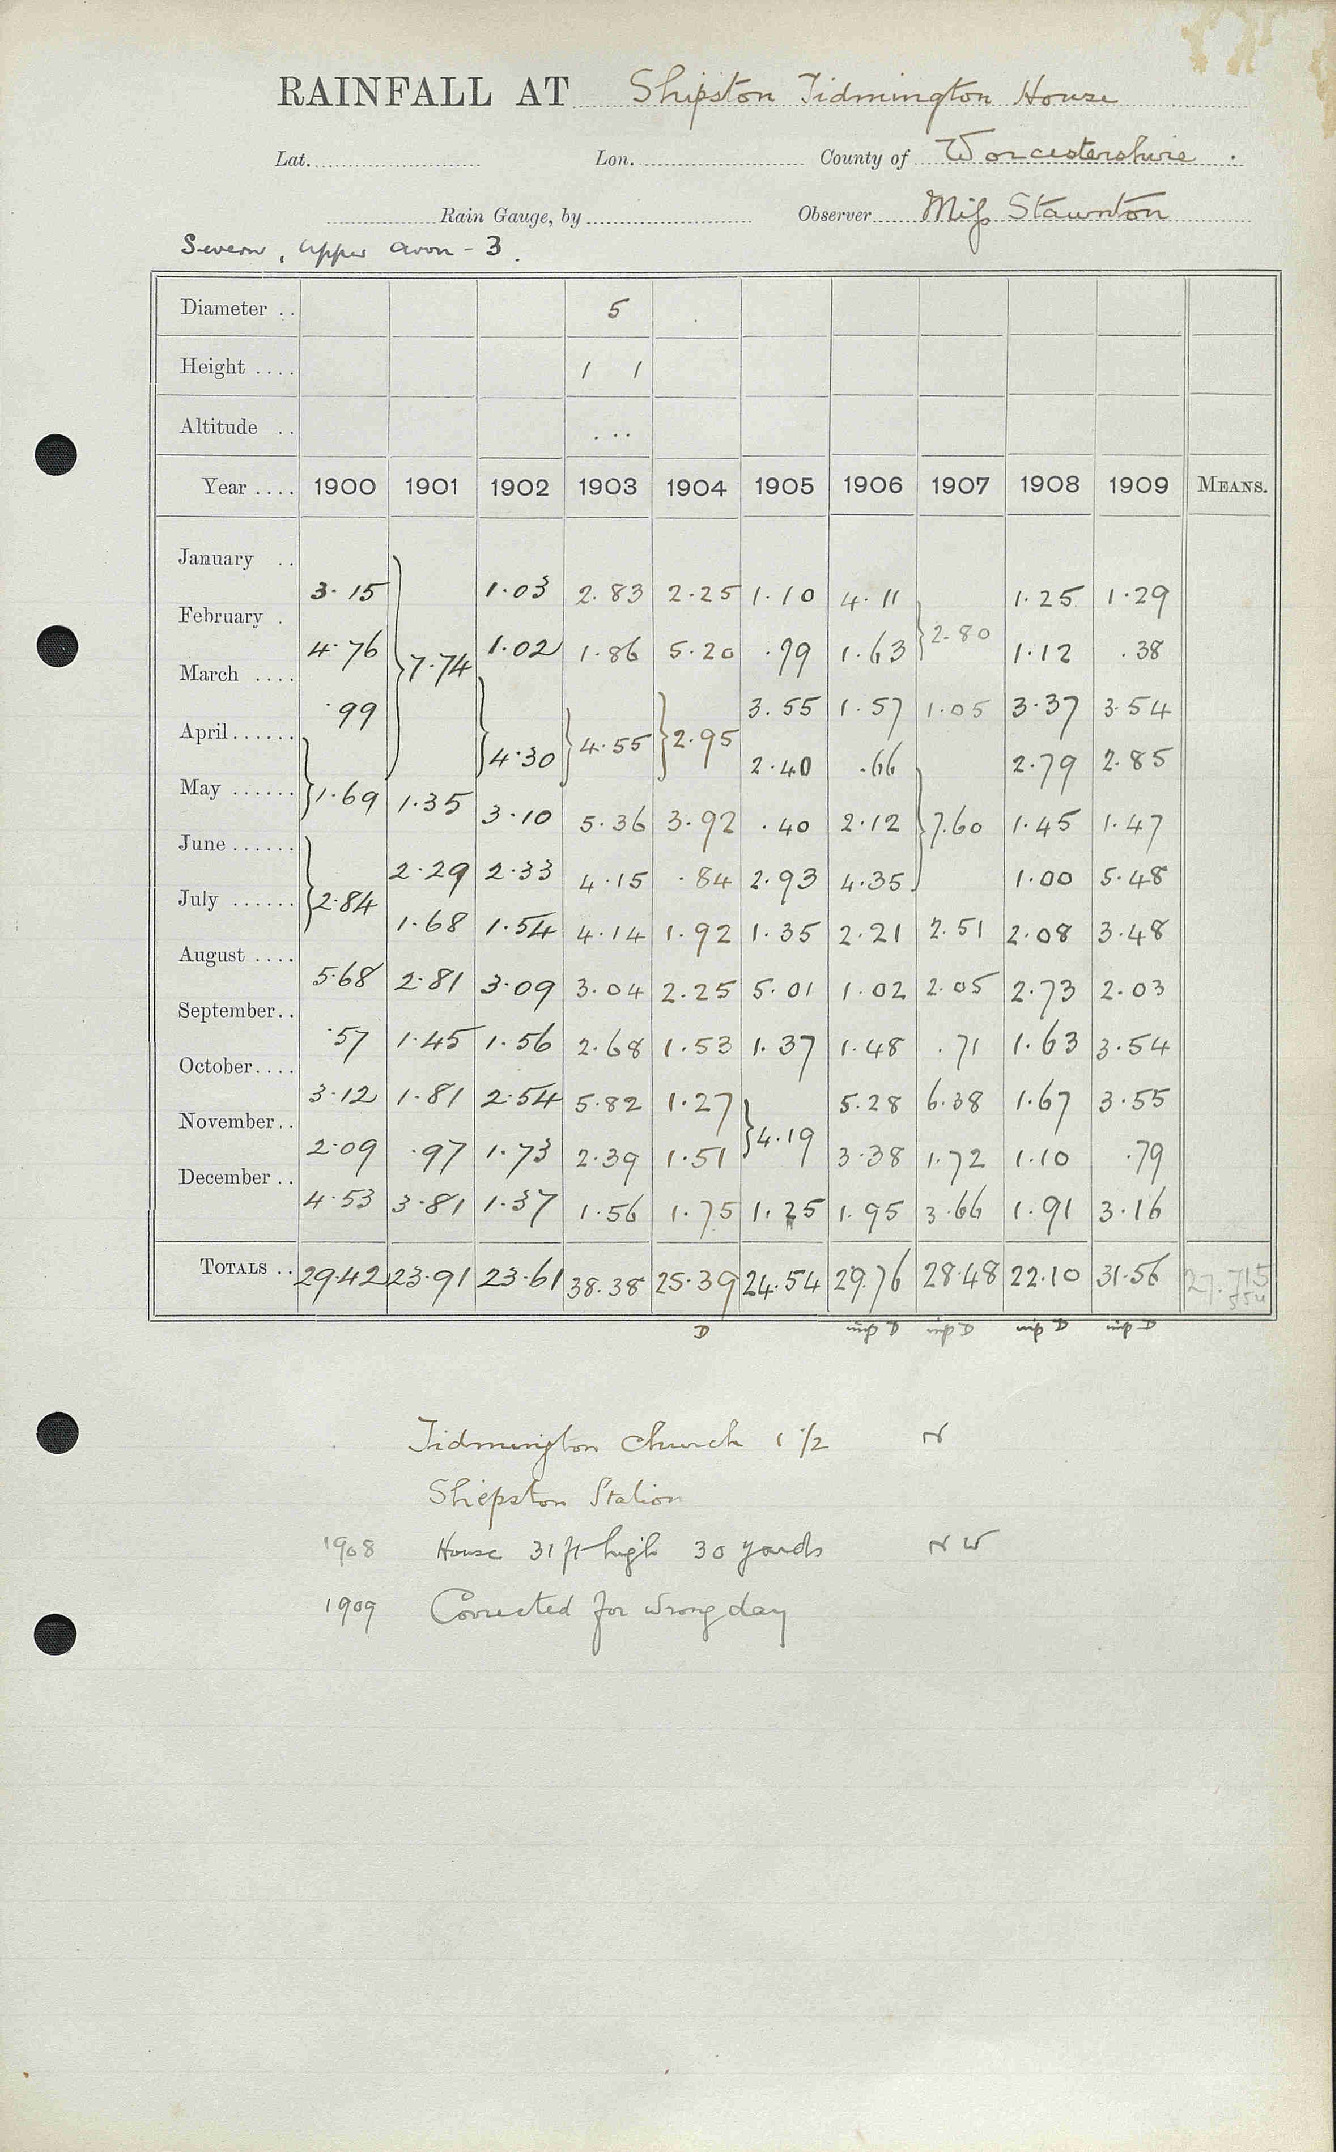 RAINFALL AT Shipston Tidmington House
Lat. Lon. County of Worcestershire.
Rain Gauge, by Observer Miss Staunton
Severn, Upper Avon - 3.
Diameter .. 5
Height .... 1 1
Altitude .. ...
Year .... 1900 1901 1902 1903 1904 1905 1906 1907 1908 1909 MEANS.
January .. 3.15 } 1.03 2.83 2.25 1.10 4.11 } 1.25 1.29
February . 4.76 7.74 1.02 1.86 5.20 .99 1.63 2.80 1.12 .38
March .... .99 } } } 3.55 1.57 1.05 3.37 3.54
April ...... } 4.30 4.55 2.95 2.40 .66 } 2.79 2.85
May ...... 1.69 1.35 3.10 5.36 3.92 .40 2.12 7.60 1.45 1.47
June ...... } 2.29 2.33 4.15 .84 2.93 4.35 1.00 5.48
July ...... 2.84 1.68 1.54 4.14 1.92 1.35 2.21 2.51 2.08 3.48
August .... 5.68 2.81 3.09 3.04 2.25 5.01 1.02 2.05 2.73 2.03
September.. .57 1.45 1.56 2.68 1.53 1.37 1.48 .71 1.63 3.54
October.... 3.12 1.81 2.54 5.82 1.27 } 5.28 6.38 1.67 3.55
November.. 2.09 .97 1.73 2.39 1.51 4.19 3.38 1.72 1.10 .79
December .. 4.53 3.81 1.37 1.56 1.75 1.25 1.95 3.66 1.91 3.16
TOTALS .. 29.42 23.91 23.61 38.38 25.39 24.54 29.76 28.48 22.10 31.56 27.715
D D D D D
Tidmington Church 1 1/2 N
Shipston Station
1908 House 31 ft high 30 yards NW
1909 Corrected for wrong day